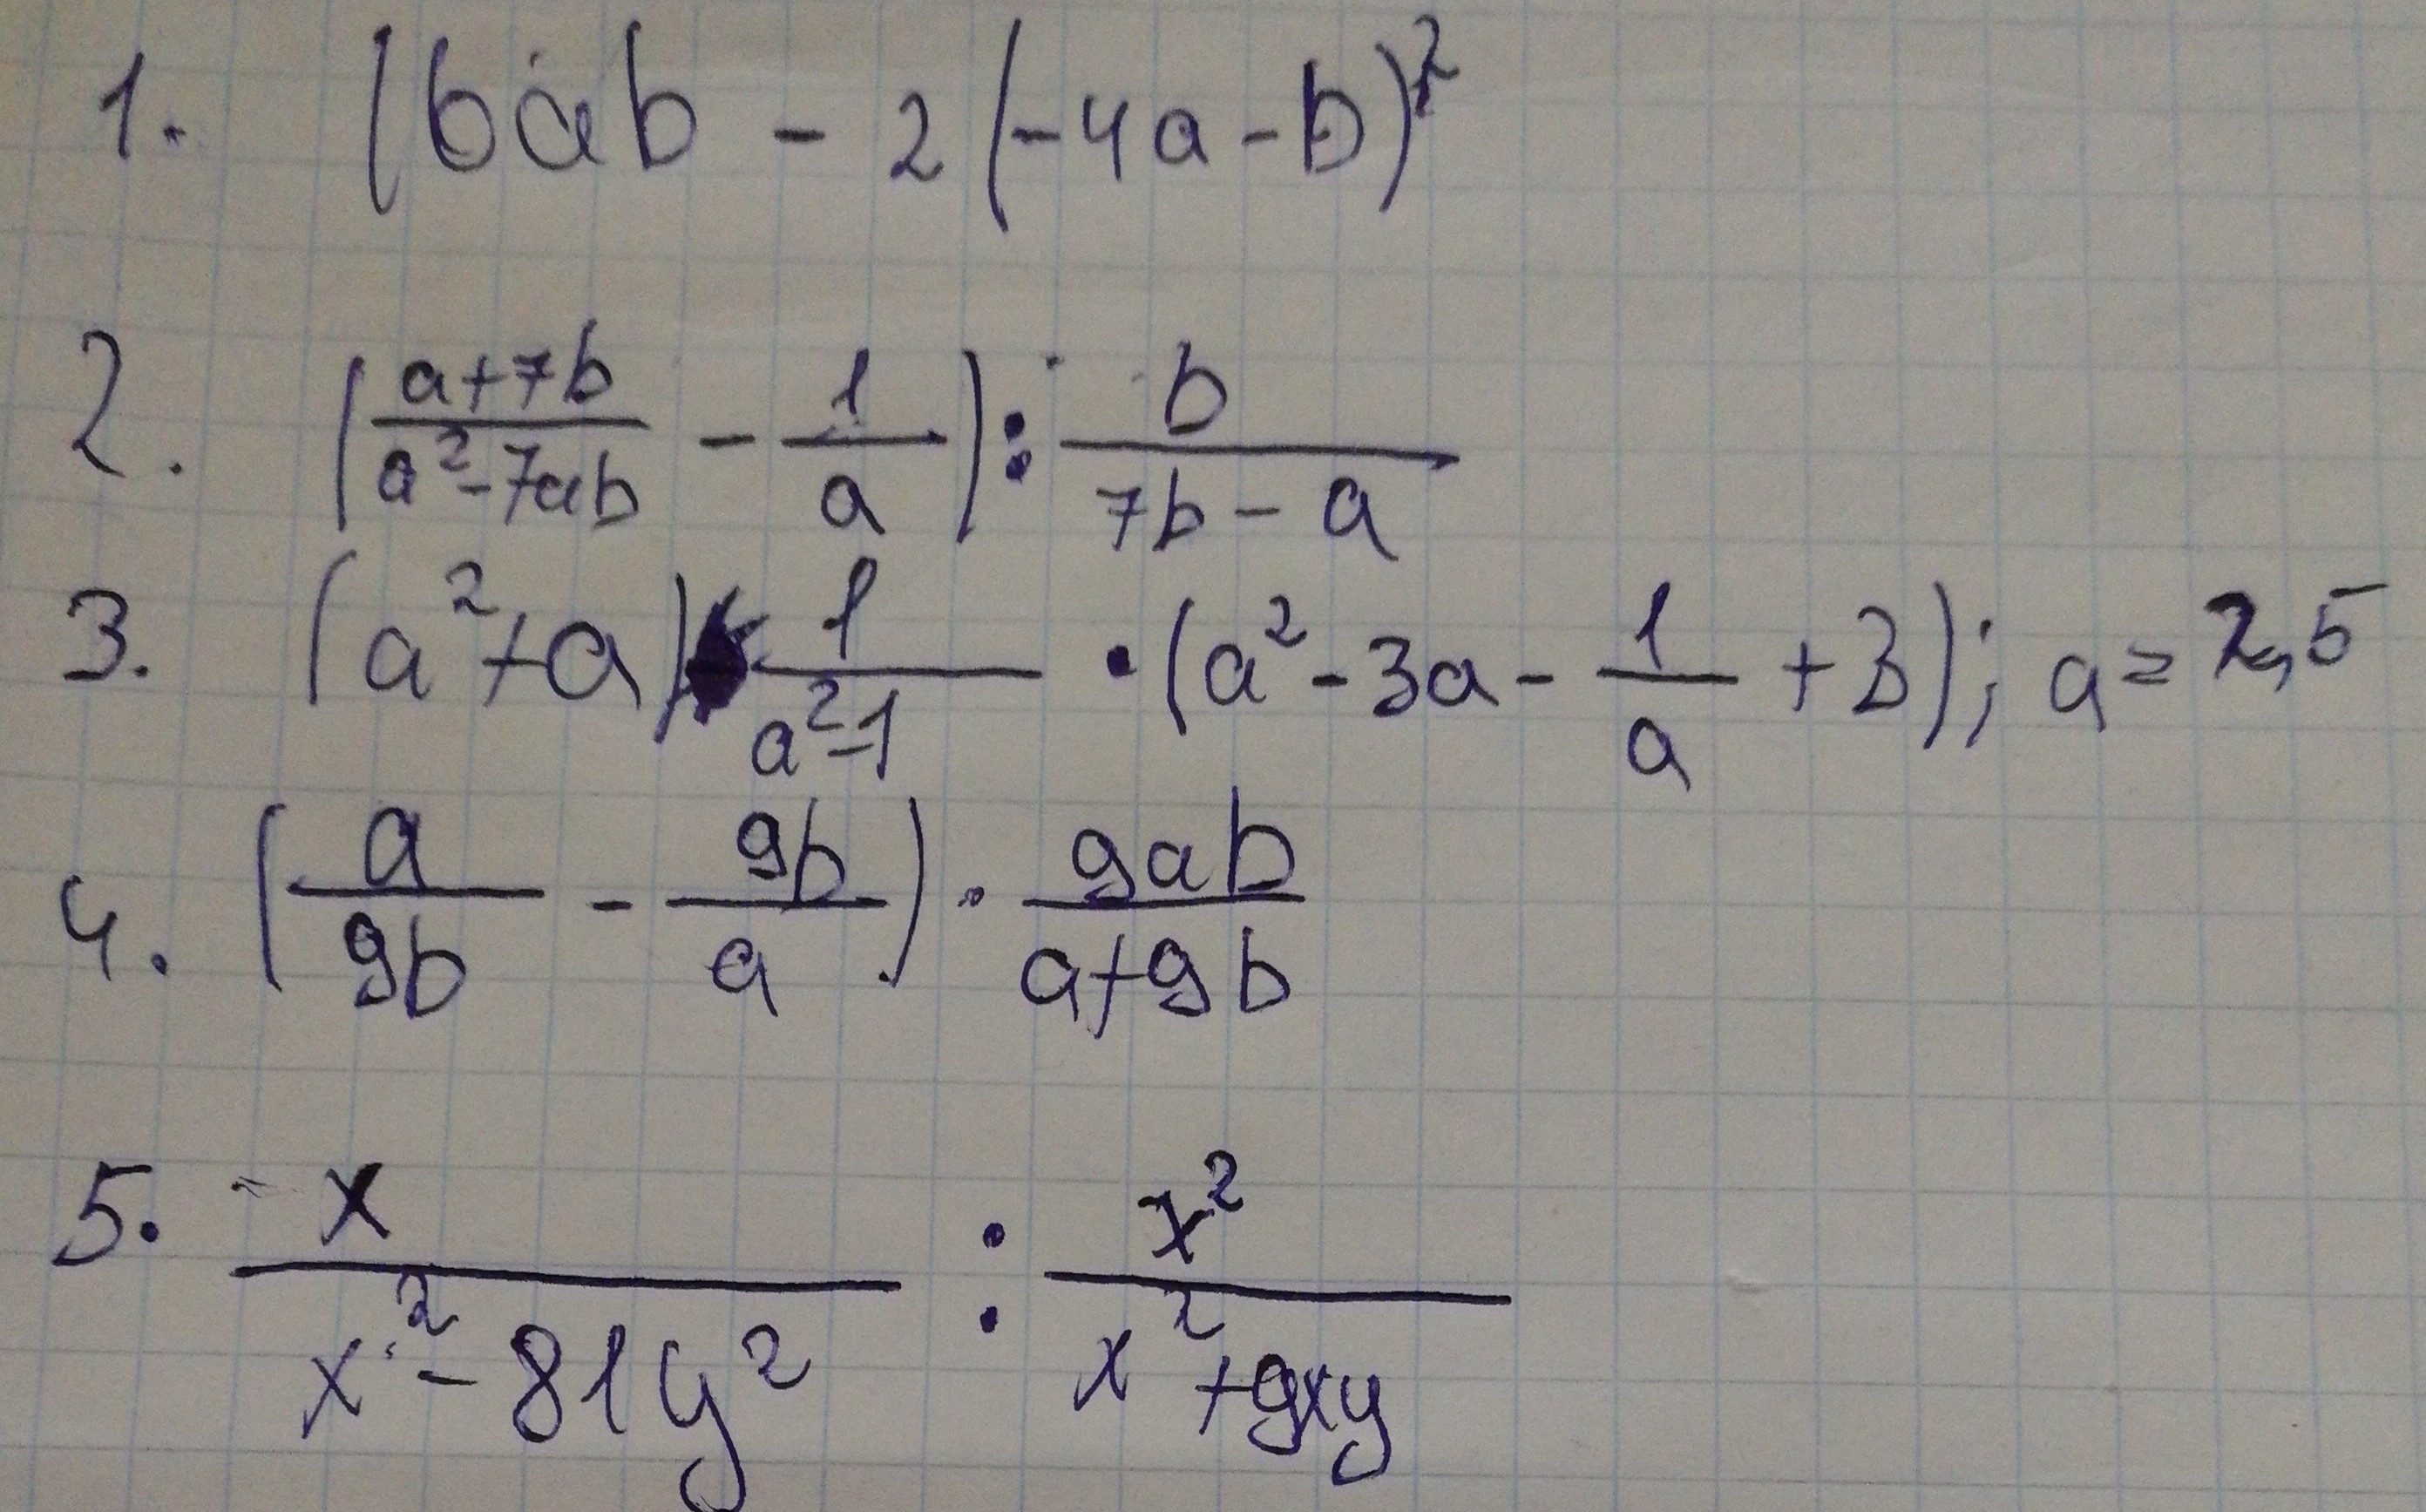 1. 16ab - 2(-4a-b)²
2. ((a+7b)/(a²-7ab) - 1/a) : b/(7b-a)
3. (a²+a) 1/(a²-1) · (a²-3a-1/a+3); a=2,5
4. (a/9b - 9b/a) · 9ab/(a+9b)
5. x/(x²-81y²) : x²/(x²+9xy)